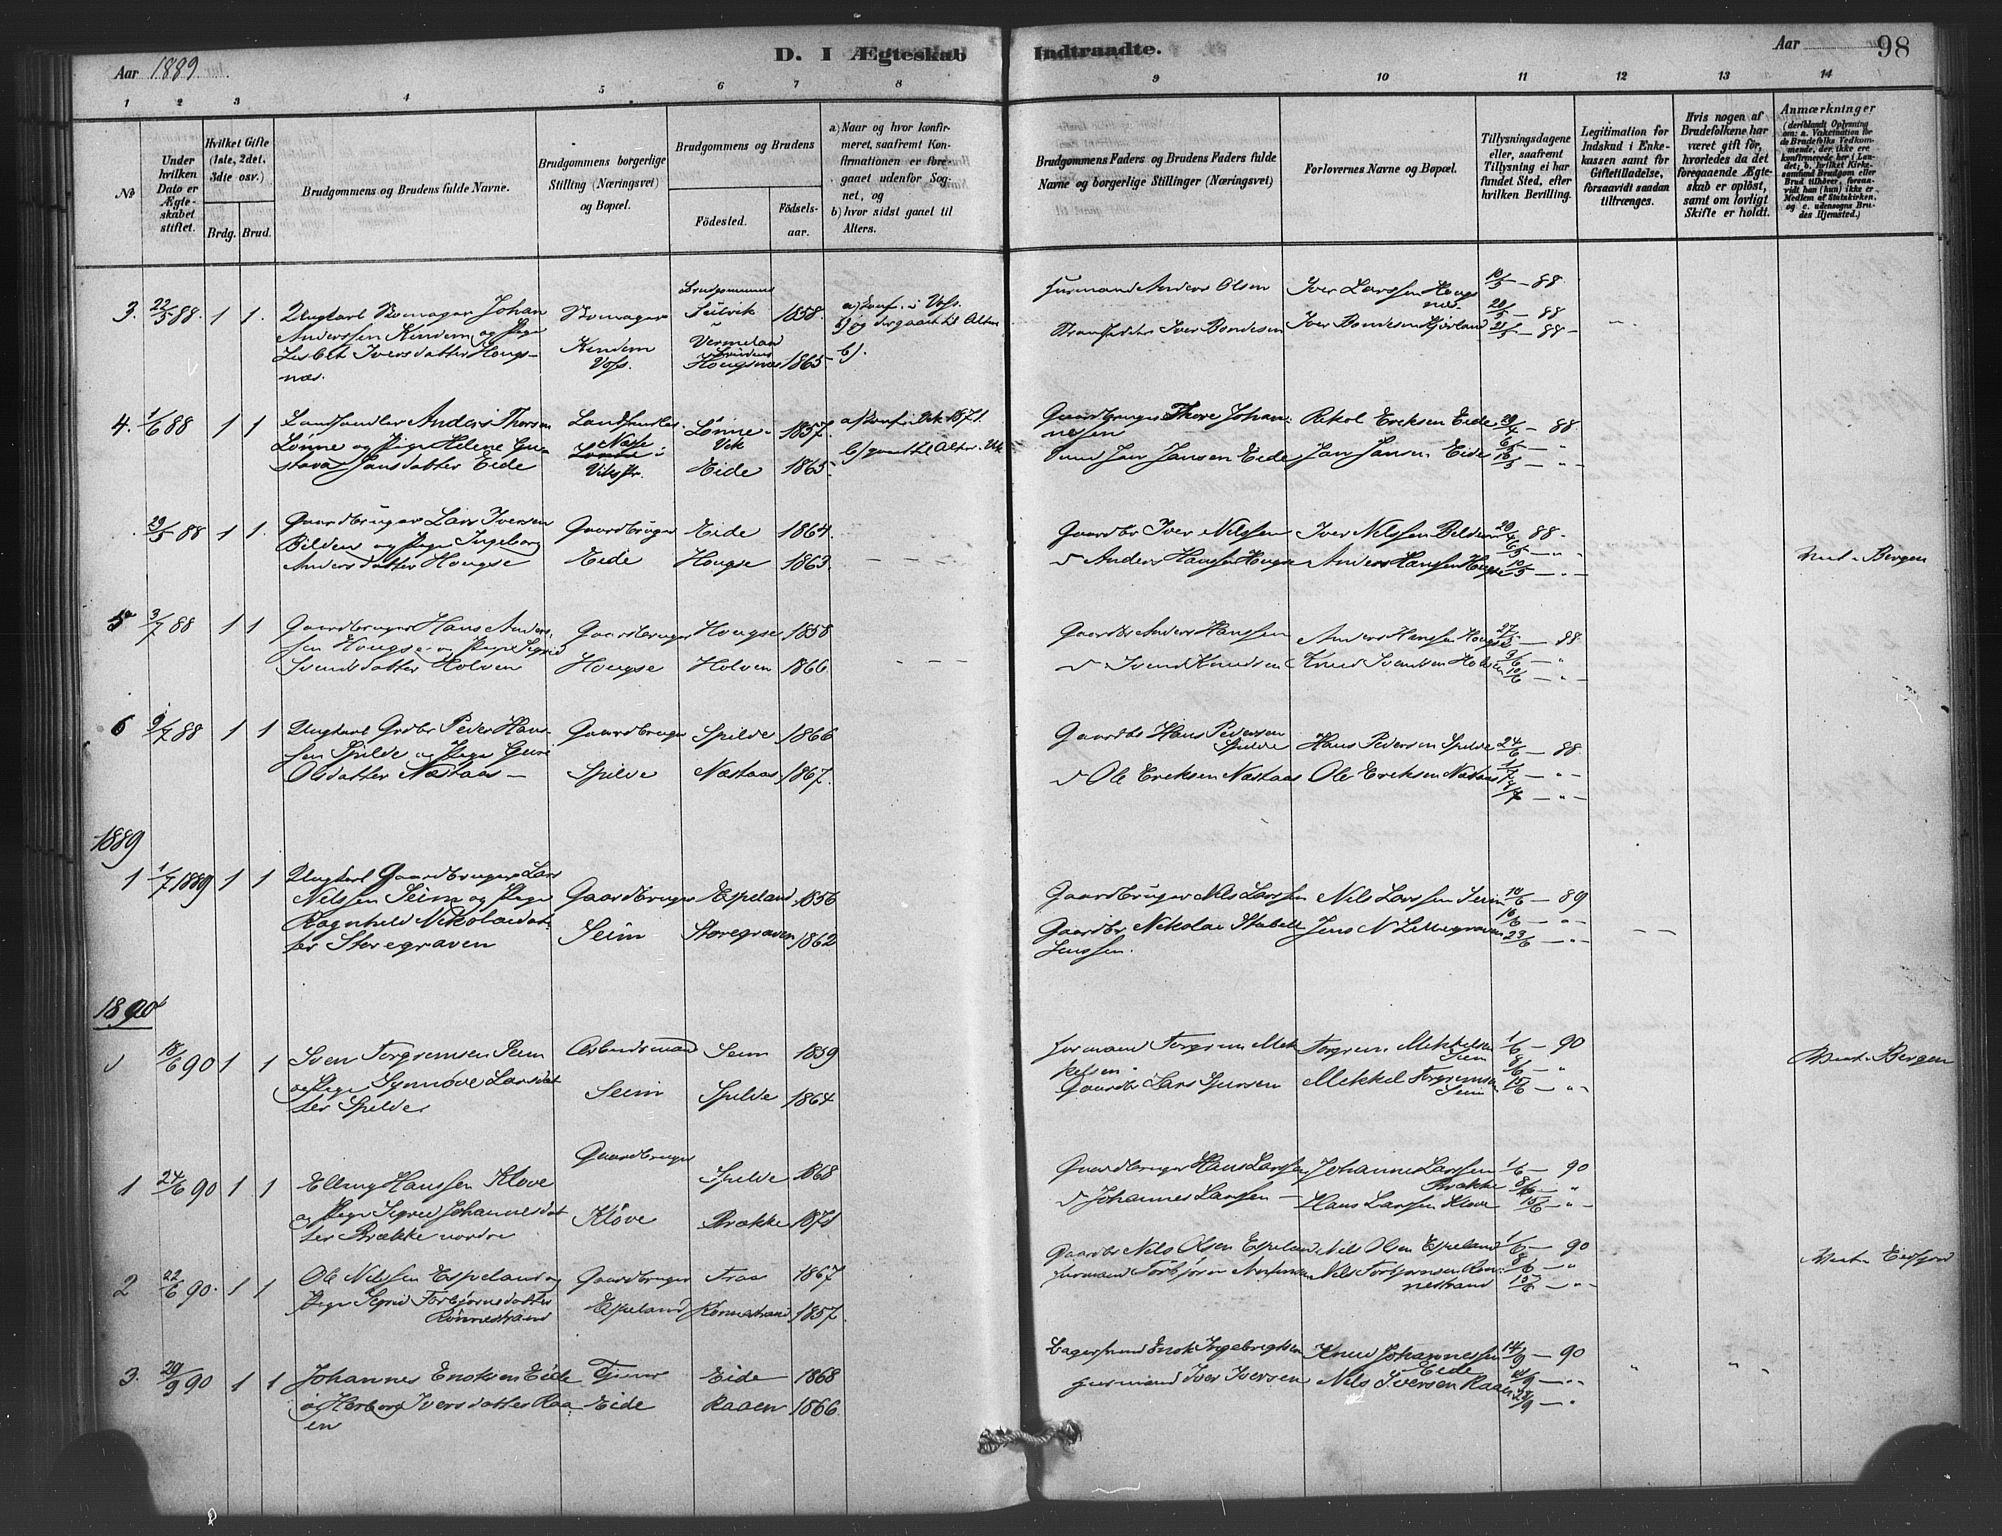 Aar 1889
D. I Ægteskab Indtraadte.
Aar 98
1 2 3 4 5 6 7 8 9 10 11 12 13 14
No
Under hvilken Dato er Ægteskabet stiftet.
Hvilket Gifte (1ste, 2det. 3die osv.)
Brdg. Brud.
Brudgommens og Brudens fulde Navne.
Brudgommens borgerlige Stilling (Næringsvei) og Bopæl.
Brudgommens og Brudens
Födested.
Födselsaar.
a) Naar og hvor konfirmeret, saafremt Konfirmationen er foregaaet udenfor Sognet, og
b) hvor sidst gaaet til Alters.
Brudgommens Faders og Brudens Faders fulde Navne og borgerlige Stillinger (Næringsvei)
Forlovernes Navne og Bopæl.
Tillysningsdagene eller, saafremt Tillysning ei har fundet Sted, efter hvilken Bevilling.
Legitimation for Indskud i Enkekassen samt for Giftetilladelse, forsaavidt saadan tiltrænges.
Hvis nogen af Brudefolkene har været gift før, hvorledes da det foregaaende Ægteskab er opløst, samt om lovligt Skifte er holdt.
Anmærkninger
3. 22/5 88. 1 1. Ungkarl Skomager Johan
Anderssen Kindem og Pige
Lisbet Iversdatter Hougsnæs.
Skomager
Kindem
Voss.
Brudgommens
Vermeland
Brudens
Hougsnæs
1858.
1865
a) Konf. i Voss.
b).
Huusmand Anders Olsen
Strandsidder Iver Bondesen
Iver Larssen Hougsnæs
Iver Bondesen
10/5 — 88
20/5 — 88
21/5 — 88 —
4. 1/6 88 1 1 Landhandler Anders Thorsen
Lønne og Pige Helene Gustava Jansdatter Eide
Landhandler
Næse
Lønne i
Viksfr.
Lønne
Vik
Eide
1857.
1865
a) Konf. i Vik 1871.
b) gaaet til Alter i Vik
Gaardbruger Thore Johannesen
Jan Jansen Eide
Rikol Eriksen Eide
Jan Jansen Eide
29/4 — 88
6/5 — "
10/5 — "
29/5 88 1 1. Gaardbruger Lars Iversen
Bilden og Pige Ingeborg
Andersdatter Hougse
Gaardbruger
Eide
Eide
Hougse
1864.
1863.
Gaardbr Iver Nilssen
" Anders Hanssen Hougse
Iver Nilssen Bilden
Anders Hanssen Hougse
29/4 88.
6/5 — "
10/5 — "
Bergen
5 3/7 88 1 1 Gaardbruger Hans Anderssen Hougse og Pige Sigrid
Svendsdatter Holven
Gaardbruger
Hougse
Hougse
Holven
1858
1866
Gaardbr Anders Hanssen
" Svend Knudsen
Anders Hanssen Hougse
Knud Svendsen Holven
27/5 — 88
3/6 — "
10/6 — "
6 9/7 88 1 1 Ungkarl Grdbr Peder Hanssen Spilde og Pige Guri
Olsdatter Næstaas —
Gaardbruger
Spilde
Spilde
Næstaas
1866
1867.
Gaardbr Hans Pedersen
Spilde
" Ole Eriksen Næstaas
Hans Pedersen Spilde
Ole Eriksen Næstaas
24/6 — 88
1/7 — "
8/7 — "
1889
1 1/7 1889 1 1 Ungkarl Gaardbruger Lars
Nilssen Seim og Pige
Ragnhild Nikolaidatter Storegraven
Gaardbruger
Seim
Espeland
Storegraven
1856
1862
Gaardbruger Nils Larssen
Gaardbr Nikolai Stabell
Jenssen.
Nils Larssen Seim
Jens N Lillegraven
10/6 — 89
16/6 — "
23/6 — "
1890
18/6 90 1 1 Sven Torgrimsen Seim
og Pige Synnøve Larsdatter Spilde
Arbeidsmand
Seim
Seim
Spilde
1859
1864
Huusmand Torgrim Mekkelsen
Gaardbr Lars Sjursen
Torgrim Mekkelsen
Seim
Mekkel Torgrimsen
Seim
1/6 — 90
8/6 — "
15/6 — "
Bergen
1 24/6 90 1 1 Elling Hanssen Kløve
og Pige Sigrid Johannesdatter Brække nordre
Gaardbruger
Kløve
Spilde
Brække
1868
1871
Gaardbruger Hans Larssen
" Johannes Larssen —
Johannes Larssen
Brække
Hans Larssen Kløve
1/6 — 90
8/6 — "
15/6 — "
2 22/6 90. 1 1 Ole Nilssen Espeland og
Pige Sigrid Torbjørnsdatter
Rønnestrand
Gaardbruger
Espeland
Traa
Rønnestrand
1867
1857.
Gaardbr Nils Olsen Espeland
Huusmand Torbjørn
Nils Olsen Espeland
Nils Torbjørnsen Rønnestrand
1/6 — 90
8/6 — "
15/6 — "
Eidfjord
3. 29/9 90 1 1 Johannes Enoksen Eide
og Herborg Iversdatter Raaen
Tjener
Eide
Eide
Raaen
1868
1866
Enok Ingebrigtsen
Huusmand Iver Iversen
Knud Johannessen
Eide
Nils Iversen Raaen
14/9 — 90
21/9 — "
28/9 — "